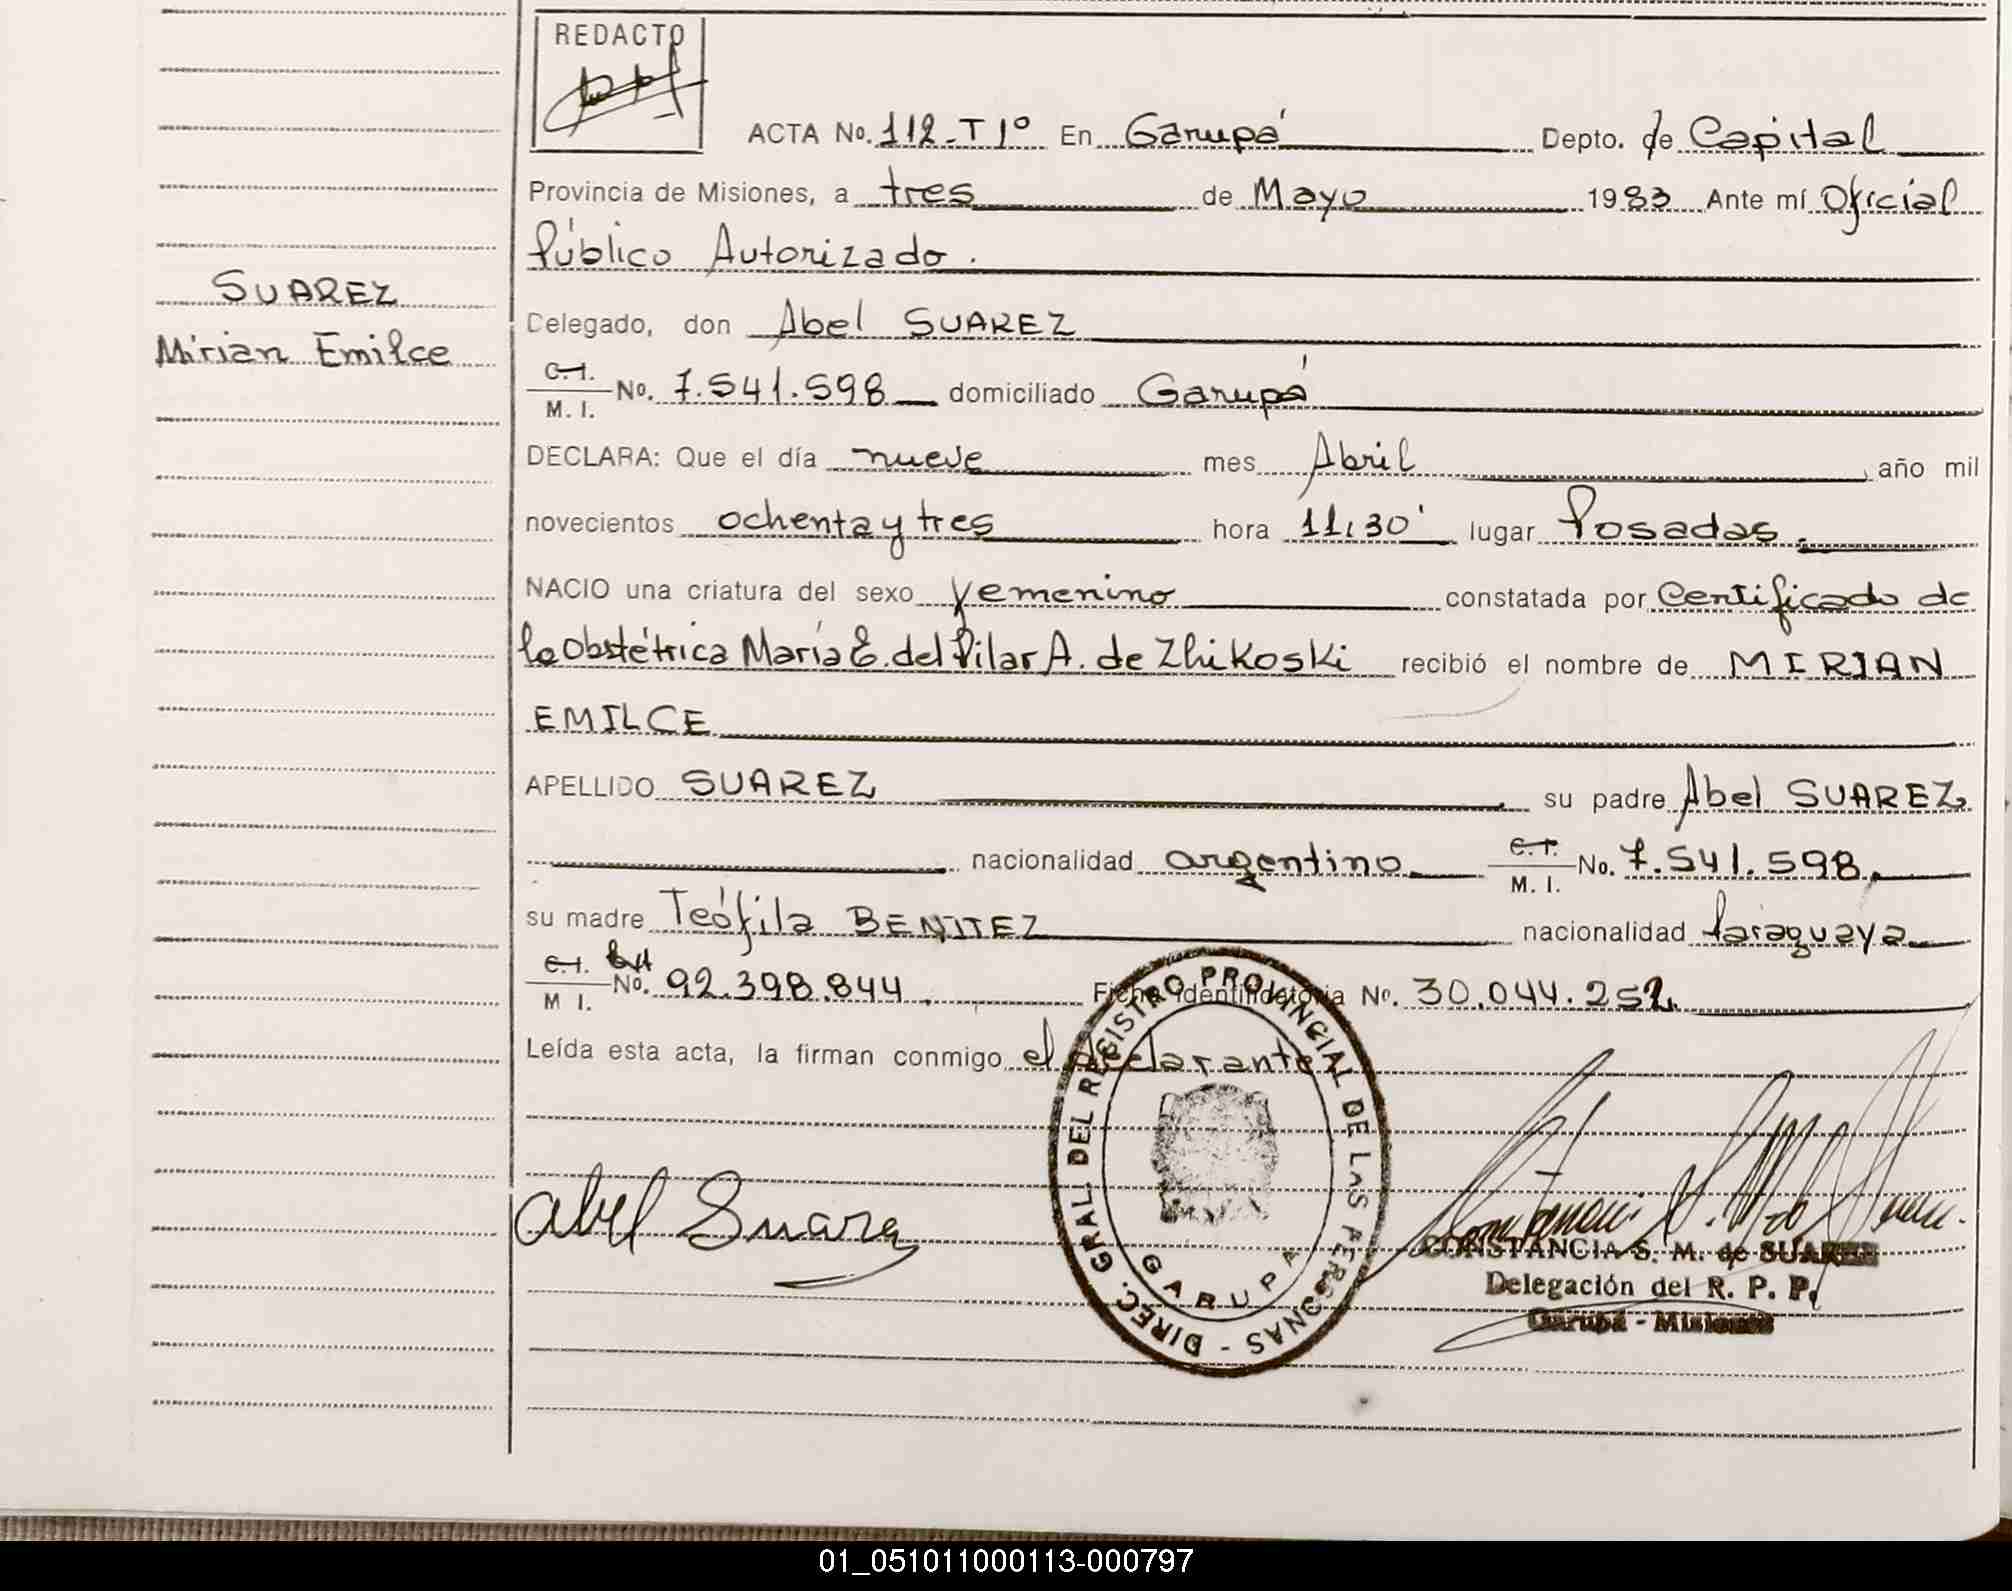 REDACTO
ACTA No. 112-T1º En Garupá Depto. de Capital
Provincia de Misiones, a tres de Mayo 1983 Ante mí Oficial
Público Autorizado.
SUAREZ
Mirian Emilce
Delegado, don Abel SUAREZ
C.I. M. I. No. 7.541.598 domiciliado Garupá
DECLARA: Que el día nueve mes Abril año mil
novecientos ochenta y tres hora 11,30' lugar Posadas.
NACIO una criatura del sexo femenino constatada por Certificado de
la Obstétrica María E. del Pilar A. de Zhikoski recibió el nombre de MIRIAN
EMILCE
APELLIDO SUAREZ su padre Abel SUAREZ
nacionalidad argentino C.I. M. I. No. 7.541.598
su madre Teófila BENITEZ nacionalidad Paraguaya
C.I. M I. No. 92.398.844. Ficha Identificatoria No. 30.044.252
Leída esta acta, la firman conmigo el declarante
Abel Suarez
DIREC. GRAL. DEL REGISTRO PROVINCIAL DE LAS PERSONAS -
GARUPA
CONSTANCIA S. M. de SUAREZ
Delegación del R. P. P.
Garupá - Misiones
01_051011000113-000797